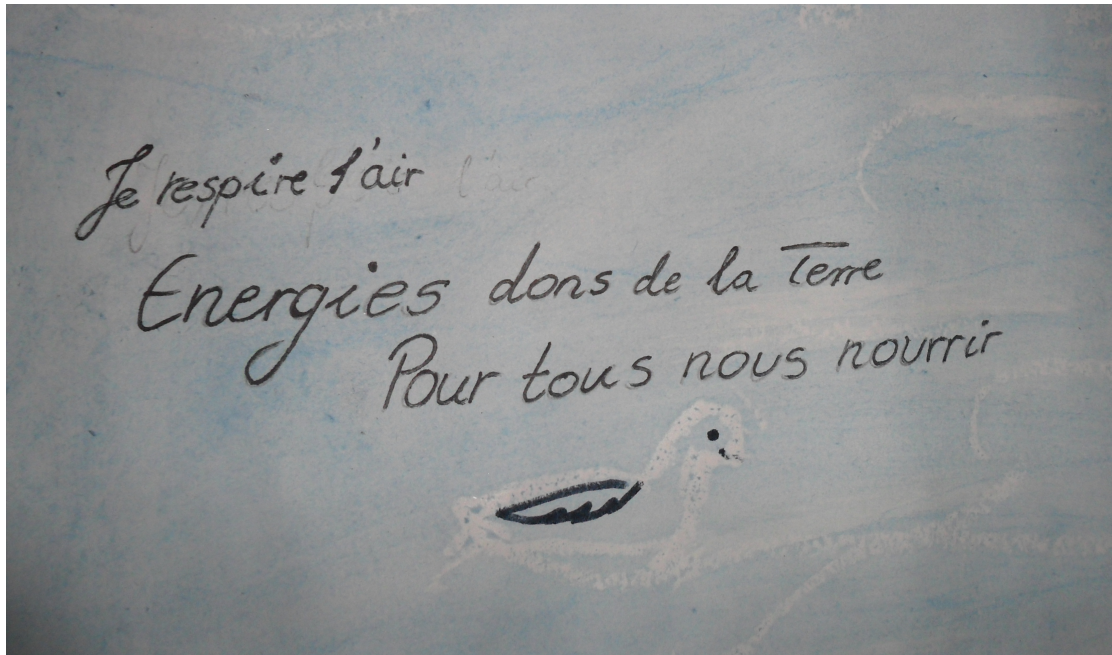 Je respire l'air
Energies dons de la Terre
Pour tous nous nourrir